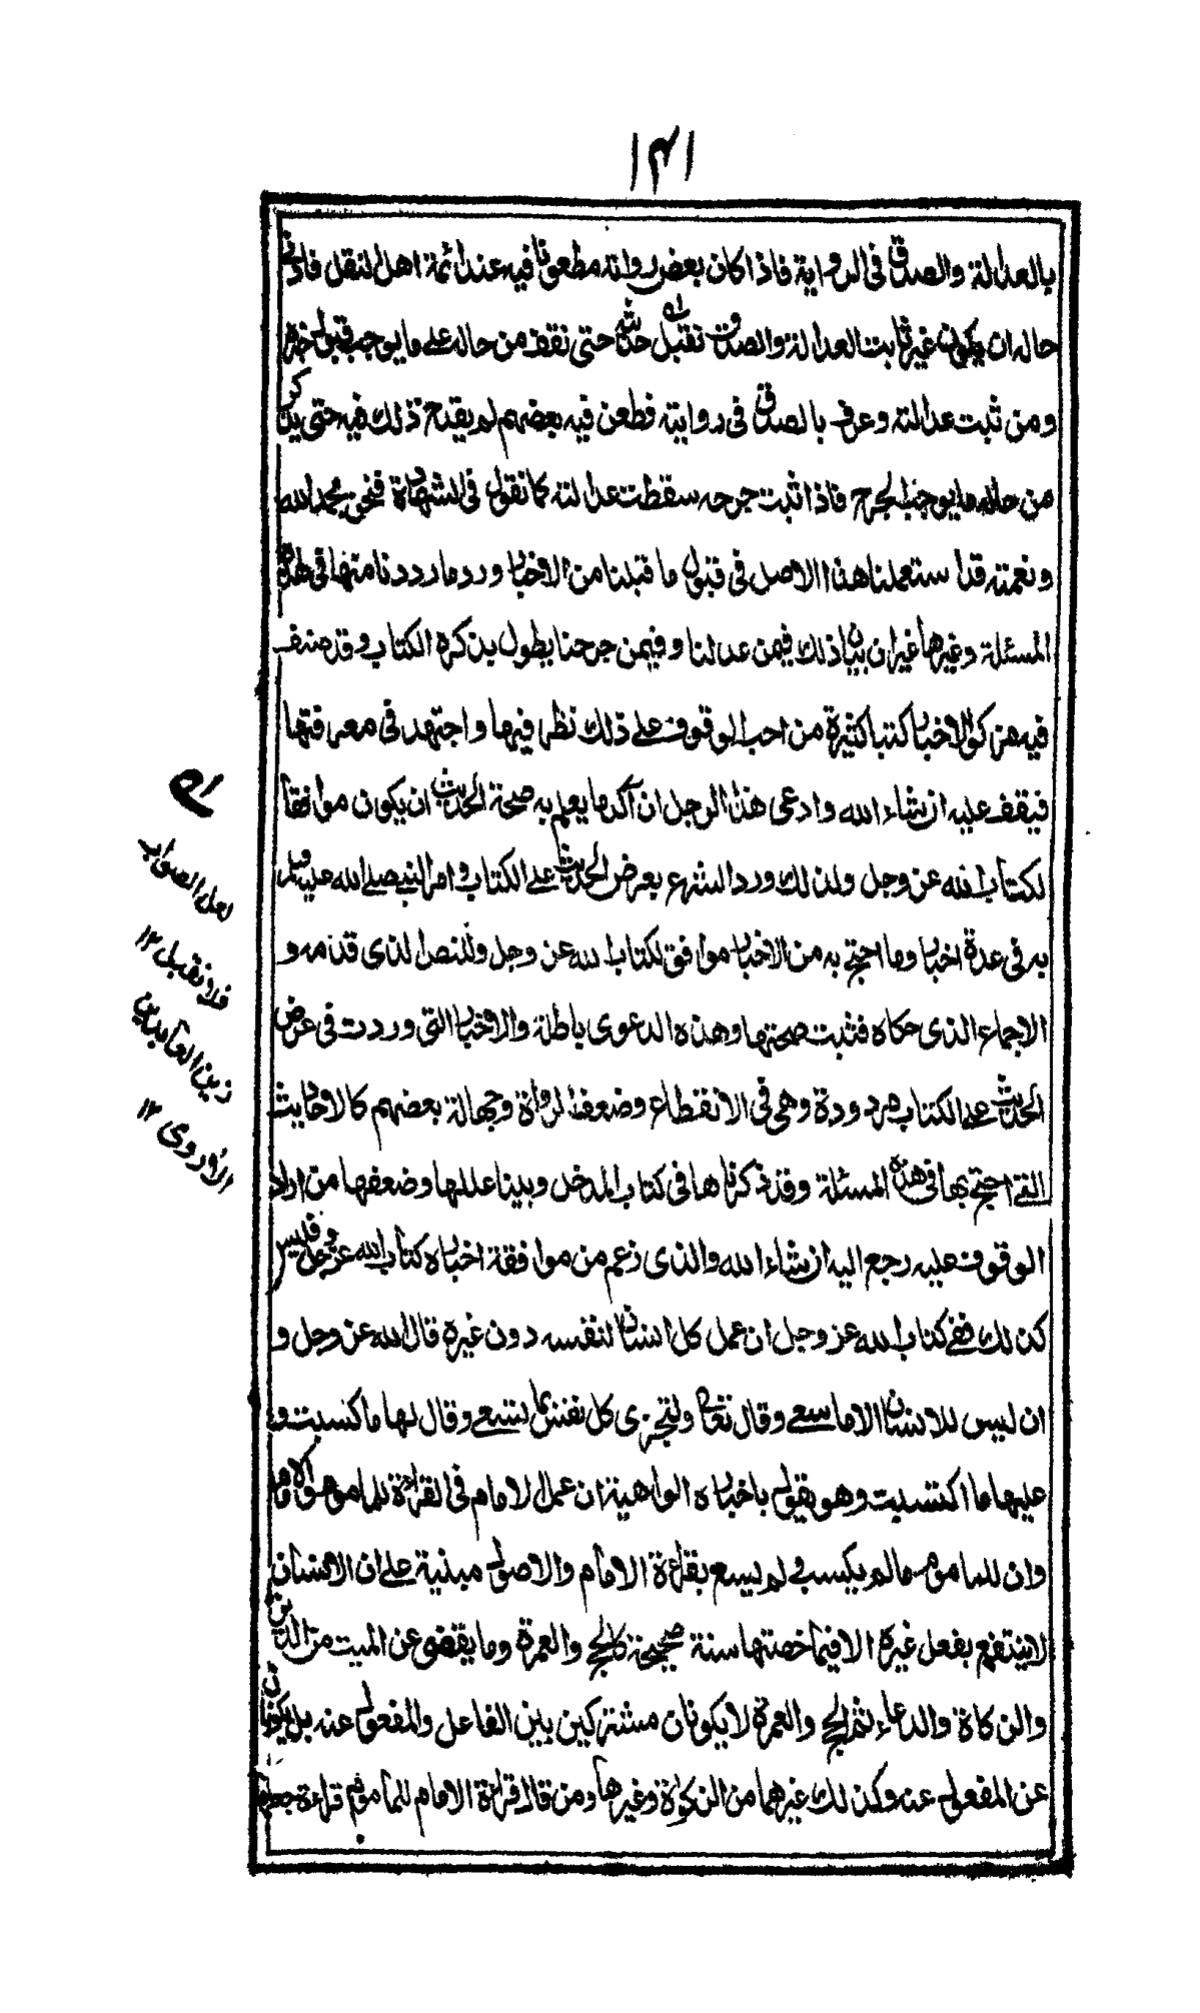 ١٤١
بالعدالة والصدق فى الرواية فاذا كان بعض رواته مطعونا فيه عند ائمة اهل النقل فادنى
حاله ان يكون غير ثابت العدالة والصدق تقبل حديثه حتى نقف من حاله على ما يوجب قبول خبره
ومن ثبت عدالته وعرف بالصدق فى روايته فطعن فيه بعضهم لم يقدح ذلك فيه حتى يذكر
من حاله ما يوجب الجرح فاذا ثبت جرحه سقطت عدالته كما نقول فى الشهادة فنحن بحمد الله
ونعمته قد استعملنا هذا الاصل فى قبول ما قبلنا من الاخبار ورد ما رددنا منها فى هذه
المسئلة وغيرها غير ان بيان ذلك فيمن عدلنا وفيمن جرحنا يطول بذكره الكتاب وقد صنف
فيه مزكوا الاخبار كتبا كثيرة من احب الوقوف على ذلك نظر فيها واجتهد فى معرفتها
فيقف عليه ان شاء الله وادعى هذا الرجل ان آكد ما يعلم به صحة الحديث ان يكون موافقا
لكتاب الله عز وجل ولذلك ورد الشرع بعرض الحديث على الكتاب وامر النبى صلى الله عليه وسلم
به فى عدة اخبار وما احتج به من الاخبار موافق لكتاب الله عز وجل وللنص الذى قدمه و
الاجماع الذى حكاه فثبت صحتها وهذه الدعوى باطلة والاخبار التى وردت فى عرض
الحديث على الكتاب مردودة وهى فى الانقطاع وضعف الرواة وجهالة بعضهم كالاحاديث
التى احتج بها فى هذه المسئلة وقد ذكرناها فى كتاب المدخل وبينا عللها وضعفها من اراد
الوقوف عليه رجع اليه ان شاء الله والذى زعم من موافقة اخباره كتاب الله عز وجل فليس
كذلك ففى كتاب الله عز وجل ان عمل كل انسان لنفسه دون غيره قال الله عز وجل و
ان ليس للانسان الا ما سعى وقال تعالى ولتجزى كل نفس بما تسعى وقال لها ما كسبت و
عليها ما اكتسبت وهو يقول باخباره الواهية ان عمل الامام فى القراءة للماموم
وان للماموم ما لم يكسب ولم يسع بقراءة الامام والاصول مبنية على ان الانسان
لا ينتفع بفعل غيره الا فيما خصتها سنة صحيحة كالحج والعمرة وما يقضى عن الميت من الدين
والزكاة والدعاء ثم الحج والعمرة لا يكونان مشتركين بين الفاعل والمفعول عنه بل يكونان
عن المفعول عنه وكذلك غيرهما من الزكوة وغيرها ومن قال قراءة الامام للماموم قراءة جعلها
لعل الصواب
فلا نقبل ١٢
زين العابدين
الأروى ١٢